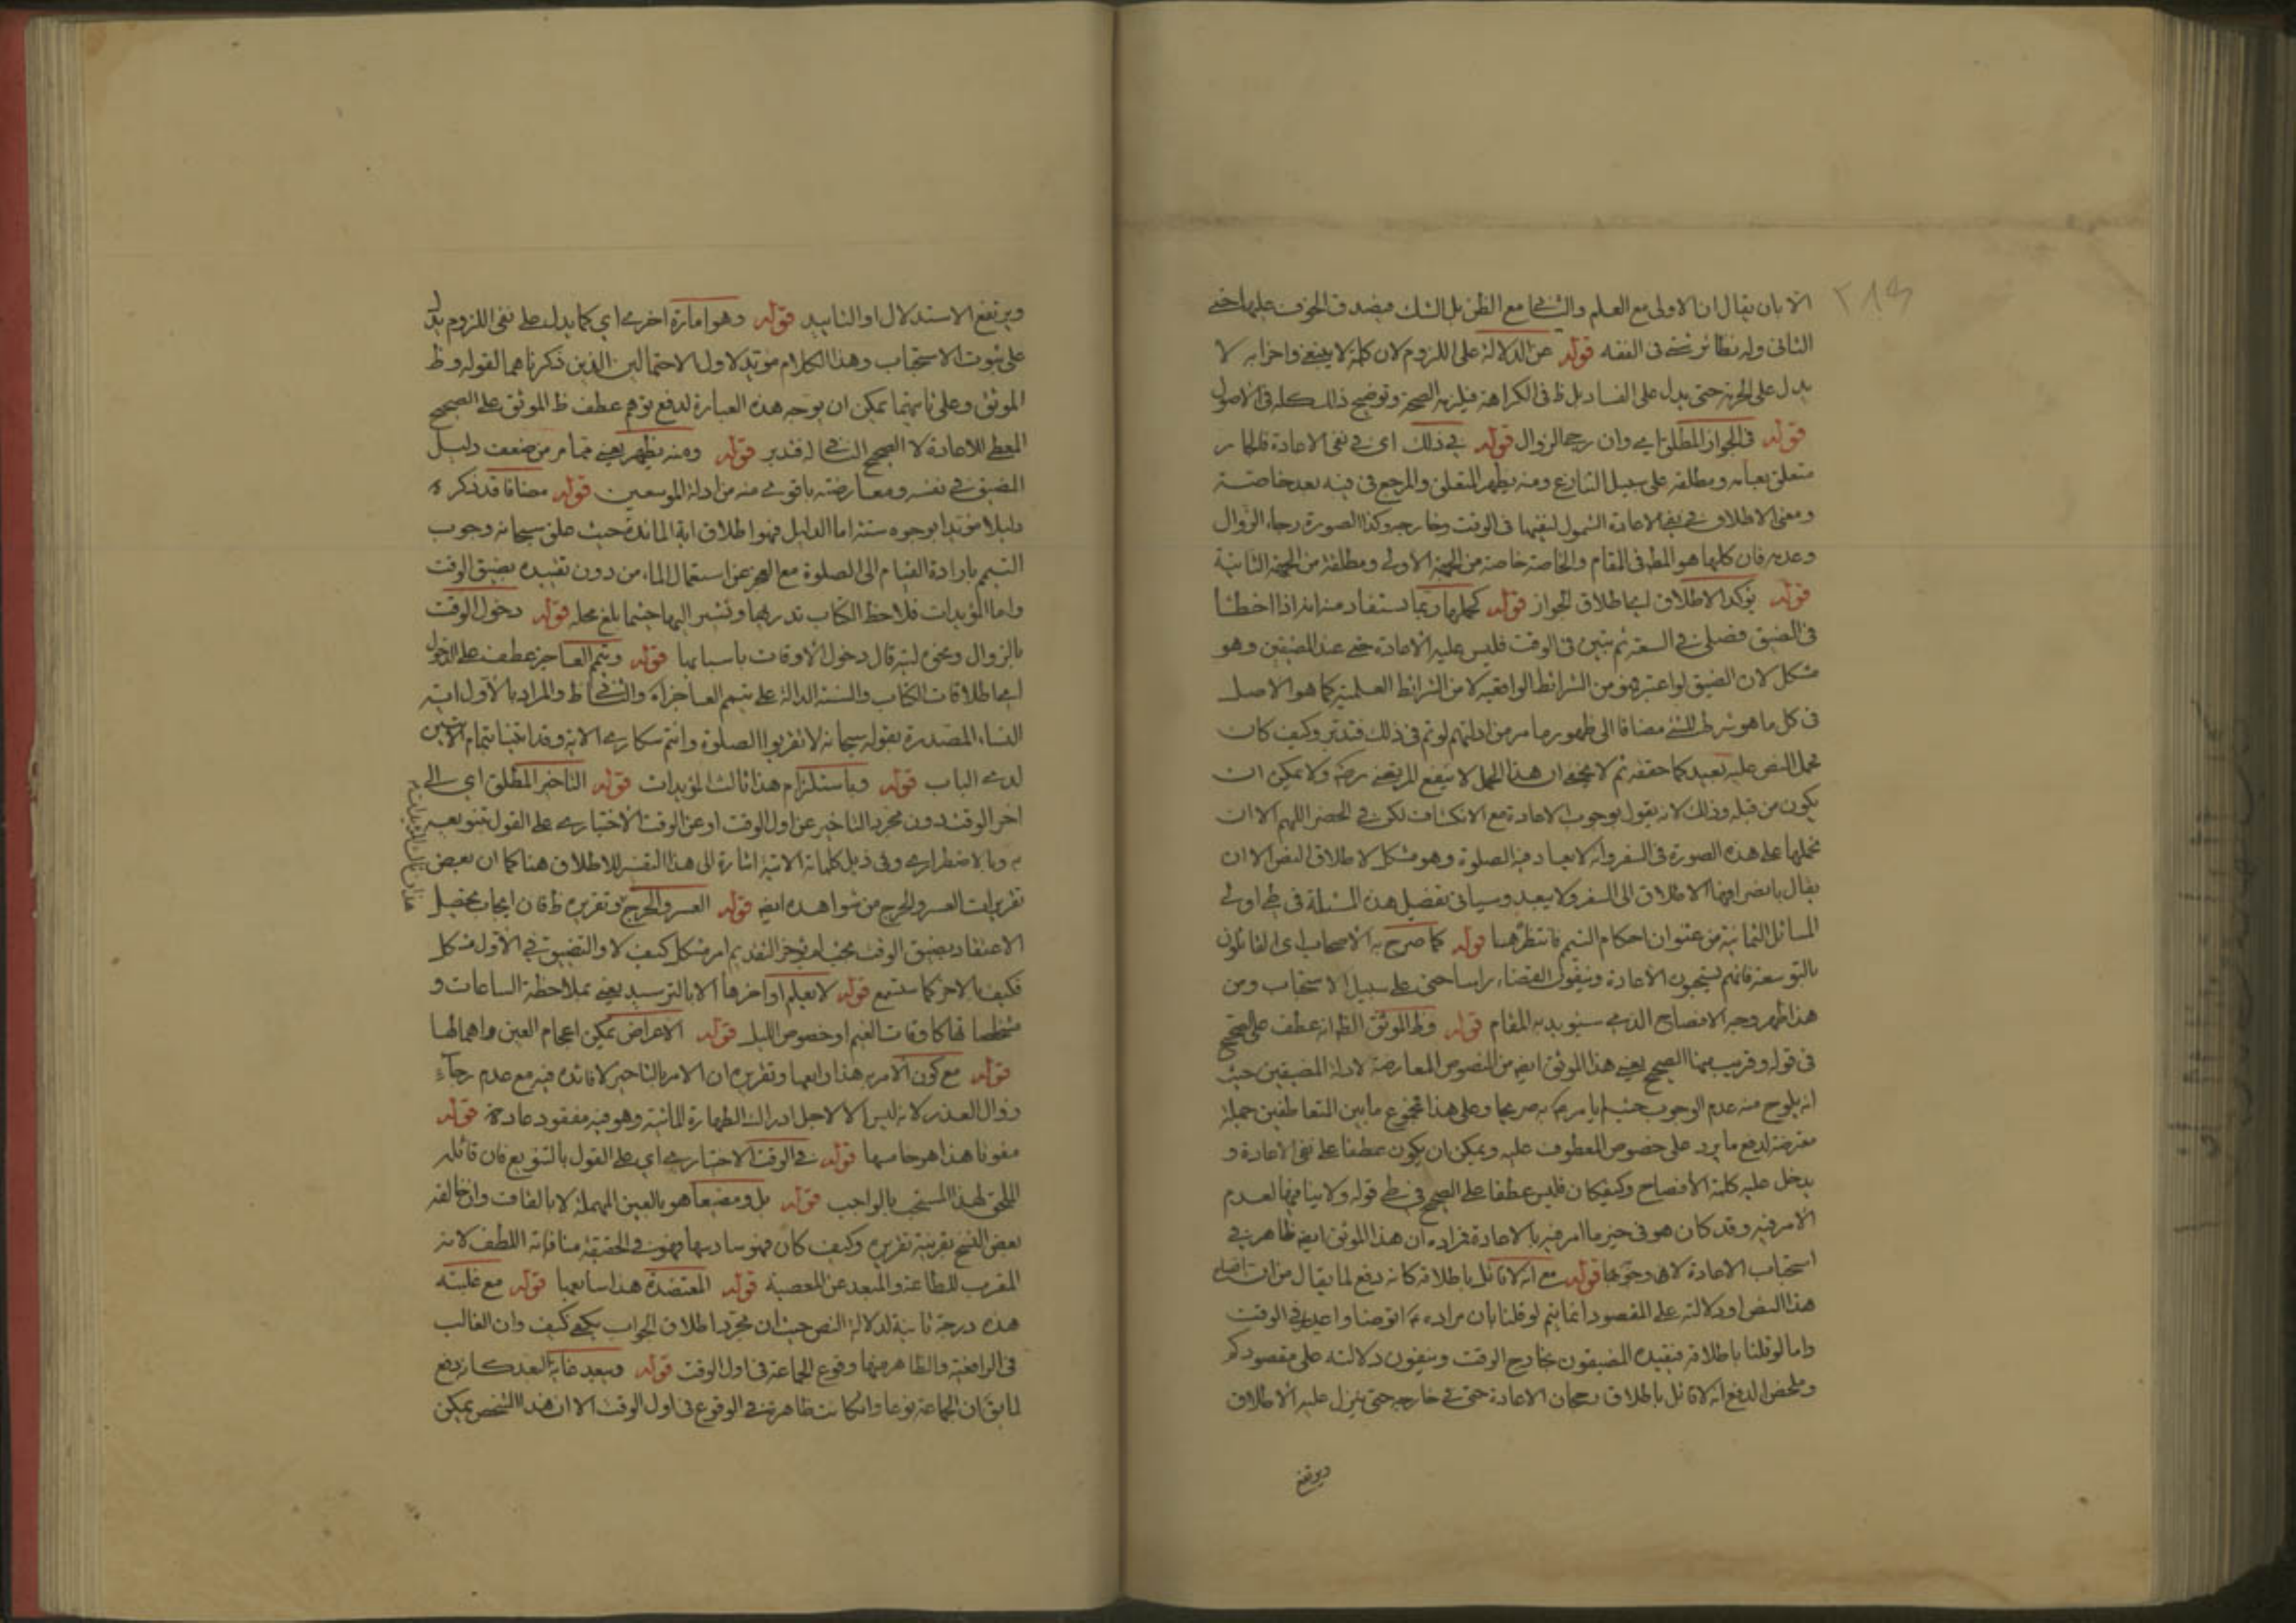 ٢١٣
الا بان يقال ان الاولى مع العلم والثانى مع الظن بل الشك فيصدق الخوف عليها حتى
الثانى وله نظائر شتى فى الفقه قوله عن الدلالة على اللزوم لان كلمة لا ينبغى واخرا به لا
يدل على الحرمة حتى يدل على الفساد بل ظ فى الكراهة فيلزمه الصحة وتوضيح ذلك كله فى الاصول
قوله فى الجواز المطلق اى وان رجى الزوال قوله فى ذلك اى فى نفى الاعادة فلما مر
متعلق بعامه ومطلقه على سبيل التنازع ومنه يظهر المتعلق والمرجع فى فيه بعد خاصته
ومعنى الاطلاق فى نفى الاعادة الشمول لنفيها فى الوقت وخارجه وكذا الصورة رجاء الزوال
وعدمه فان كلها هو المط فى المقام والخاصة خاصة من الجهة الاولى ومطلقة من الجهة الثانية
قوله يؤكد الاطلاق اى اطلاق الجواز قوله كجملها ربما يستفاد منه انه اذا اخطأ
فى الضيق فصلى فى السعة ثم تبين فى الوقت فليس عليه الاعادة حتى عند المضيقين وهو
مشكل لان الضيق لو اعتبر فهو من الشرائط الواقعية لا من الشرائط العلمية كما هو الاصل
فى كل ما هو شرط للشئ مضافا الى ظهور ما مر من ادلتهم لو تم فى ذلك فتدبر وكيف كان
فحمل النص عليه بعيد كما حققه ثم لا يخفى ان هذا الحمل لا ينفع المرتضى ره ولا يمكن ان
يكون من قبله وذلك لانه يقول بوجوب الاعادة مع الانكشاف لكن فى الحضر اللهم الا ان
نحملها على هذه الصورة فى السفر وانه لا يعاد فيه الصلوة وهو مشكل لاطلاق النص الا ان
يقال بانصراف الاطلاق الى السفر ولا يبعد وسياتى تفصيل هذه المسئلة فى طى اولى
المسائل الثمانية من عنوان احكام التيمم فانتظر هنا قوله كما صرح به الاصحاب اى القائلون
بالتوسعة فانهم يستحبون الاعادة وينفون القضاء راسا حتى على سبيل الاستحباب ومن
هذا ظهر وجه الافصاح الذى سنؤيد به المقام قوله وظ الموثق الظ انه عطف على الصحيح
فى قوله وقريب منها الصحيح يعنى هذا الموثق ايضا من النصوص المعارضة لادلة المضيقين حيث
انه يلوح منه عدم الوجوب حيث لم يامره به صريحا وعلى هذا مجموع ما بين المتعاطفين جملة
معترضة لدفع ما يرد على خصوص المعطوف عليه ويمكن ان يكون عطفا على نفى الاعادة و
يدخل عليه كلمة الافصاح وكيف كان فليس عطفا على الصحيح فى طى قوله ولا ينافيها لعدم
الامر فيه وقد كان هو فى حيز ما امر فيه بالاعادة فمراده ان هذا الموثق ايضا ظاهر فى
استحباب الاعادة لا وجوبها قوله مع انه لا قائل باطلاقه كانه دفع لما يقال من ان
هذا النص او دلالته على المقصود انما يتم لو قلنا بان مراده توضا واعد فى الوقت
واما لو قلنا باطلاقه فيقيده المضيقون بخارج الوقت وينفون دلالته على مقصودكم
وملخص الدفع انه لا قائل باطلاق رجحان الاعادة حتى فى خارجه حتى ينزل عليه الاطلاق
ويرتفع
ويرتفع الاستدلال او التاييد قوله وهو امارة اخرى اى كما يدل على نفى اللزوم يدل
على ثبوت الاستحباب وهذا الكلام مؤيد لاول الاحتمالين الذين ذكرناهما لقوله وظ
الموثق وعلى ثانيهما يمكن ان يوجه هذه العبارة لدفع توهم عطف ظ الموثق على الصحيح
المعطى للاعادة لا الصحيح النافى له فتدبر قوله ومنه يظهر يعنى مما مر من ضعف دليل
المضيق فى نفسه ومعارضته باقوى منه من ادلة الموسعين قوله مضافا قد ذكره
دليلا مؤيدا بوجوه ستة اما الدليل فهو اطلاق اية المائدة حيث علق سبحانه وجوب
التيمم بارادة القيام الى الصلوة مع العجز عن استعمال الماء من دون تقييده بضيق الوقت
واما المؤيدات فلاحظ الكتاب تدر بها ونشير اليها حيثما بلغ محله قوله دخول الوقت
بالزوال ونحوه لبته قال دخول الاوقات باسبابها قوله وتيمم العاجز عطف على الدخول
اى اطلاقات الكتاب والسنة الدالة على تيمم العاجز اه والثانى ظ والمراد بالاول اية
النساء المصدرة بقوله سبحانه لا تقربوا الصلوة وانتم سكارى الاية وقد اثبتنا تمام الايتين
لدى الباب قوله وباستلزام هذا ثالث المؤيدات قوله التاخير المطلق اى الى
اخر الوقت دون مجرد التاخير عن اول الوقت او عن الوقت الاختيارى على القول بتنويعه
به وبالاضطرارى وفى ذيل كلماته الاتية اشارة الى هذا التفسير للاطلاق هنا كما ان بعض
تقريرات العسر والحرج من شواهده ايضا قوله العسر والحرج وتقريره ظ فان ايجاب تحصيل
الاعتقاد بضيق الوقت بحيث لم يؤخر التقديم امر مشكل كيف لا والتضييق فى الاول مشكل
فكيف بالاخر كما ستسمع قوله لا يعلم اواخرها الا بالترسيد يعنى بملاحظة الساعات و
شخصاتها كاوقات الغيم او خصوص الليل قوله الاعراض يمكن اعجام العين واهمالها
قوله مع كون الامر به هذا رابعها وتقريره ان الامر بالتاخير لا فائدة فيه مع عدم رجاء
زوال العذر لانه ليس الا لاجل ادراك الطهارة المائية وهو فيه مفقود عادة قوله
مفوتا هذا هو خامسها قوله فى الوقت الاختيارى اى على القول بالتنويع فان قائله
الملحق لهذا المستحب بالواجب قوله بل ومضيعا هو بالعين المهملة لا بالقاف وان خالفه
بعض النسخ بقرينة تقريره وكيف كان فهو سادسها فهو فى الحقيقة منافاته اللطف لانه
المقرب للطاعة والمبعد عن المعصية قوله المعتضدة هذا سابعها قوله مع غلبته
هذه درجة ثانية لدلالة النص حيث ان مجرد اطلاق الجواب يكفى كيف وان الغالب
فى الواقعة والظاهر منها وقوع الجماعة فى اول الوقت قوله ويبعد غاية البعد كانه دفع
لما يق ان الجماعة نوعا وان كانت ظاهرة فى الوقوع فى اول الوقت الا ان هذا الشخص يمكن